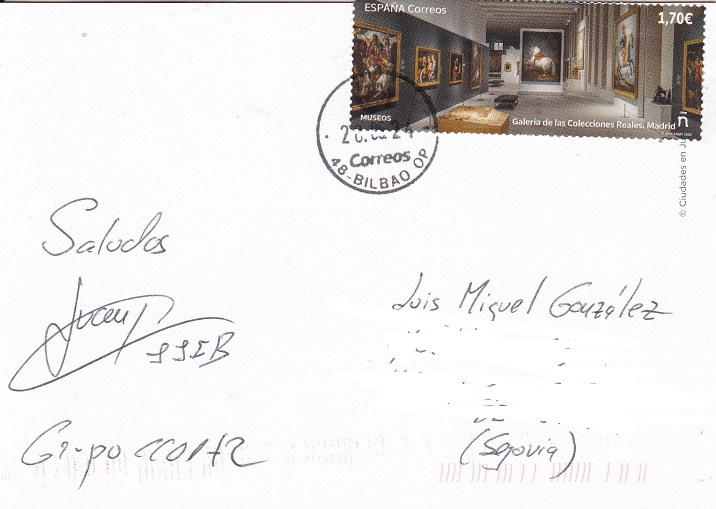 ESPAÑA Correos
1,70€
MUSEOS
Galería de las Colecciones Reales. Madrid
ñ
Correos
48-BILBAO OP
© Ciudades en
Saludos
Luis Miguel González
Grupo
(Segovia)